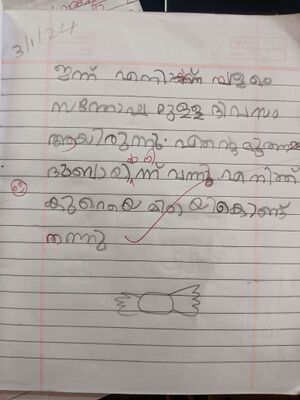 3/1/24
ഇന്ന് എനിക്ക് വളരെ
സന്തോഷ മുള്ള ദിവസം
ആയിരുന്നു. എന്റെ
ദുബായിന്ന് വന്നു എനിക്ക്
കുറെയെ മിഠായികൊണ്ട്
തന്നു